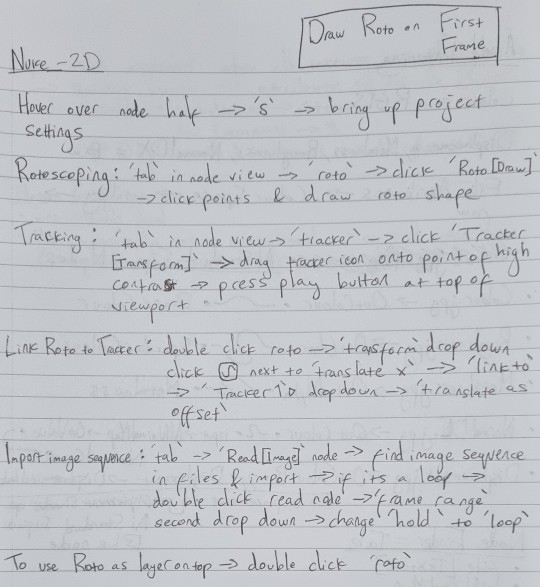 Draw Roto on First
Frame
Nuke - 2D
Hover over node half → 's' → bring up project
settings
Rotoscoping: 'tab' in node view → 'roto' → click 'Roto [Draw]'
→ click points & draw roto shape
Tracking: 'tab' in node view → 'tracker' → click 'Tracker
[Transform]' → drag tracker icon onto point of high
contrast → press play button at top of
viewport
Link Roto to Tracker: double click roto → 'transform' drop down
click next to 'translate x' → 'link to'
→ 'Tracker 1' drop down → 'translate as
offset'
Import image sequence: 'tab' → 'Read [Image]' node → find image sequence
in files & import → if its a loop →
double click read node → 'frame range'
second drop down → change 'hold' to 'loop'
To use Roto as layer on top → double click 'roto'